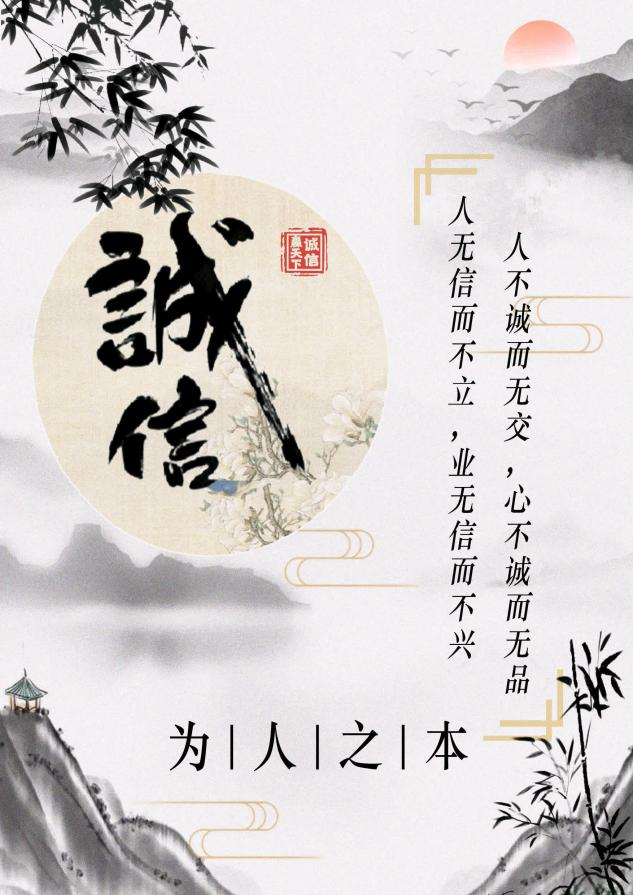 誠信
诚信
赢天下
人无信而不立,业无信而不兴
人不诚而无交,心不诚而无品
为|人|之|本